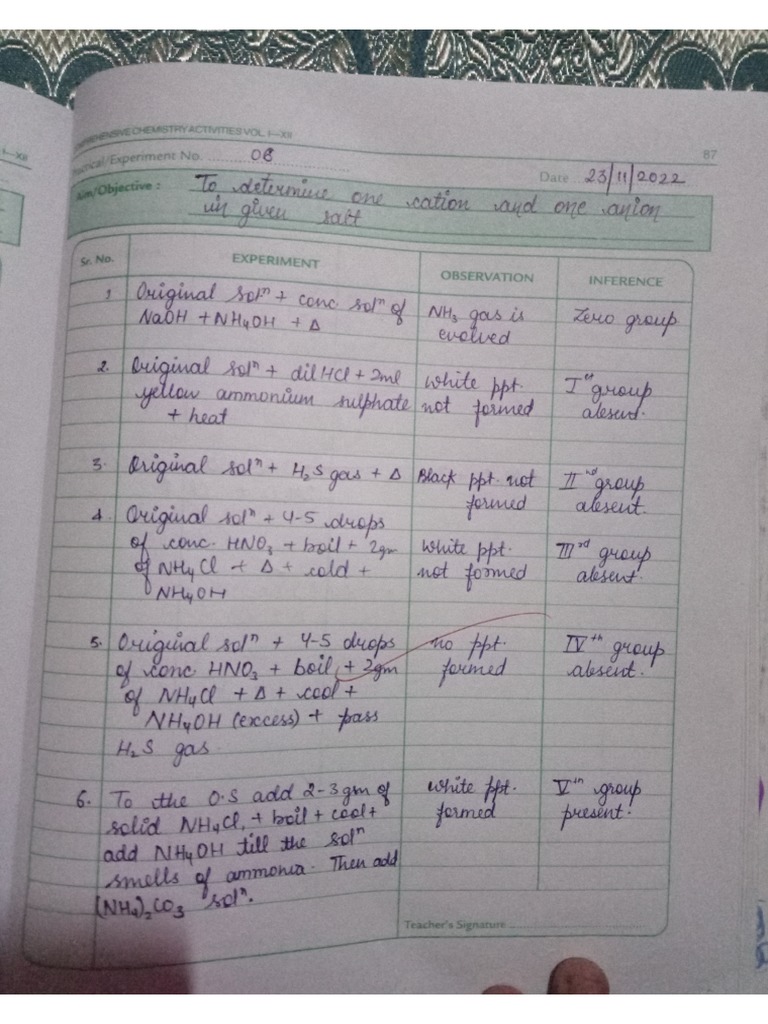 I—XII
PREHENSIVE CHEMISTRY ACTIVITIES VOL. I—XII
87
Practical/Experiment No. 08
Date 23/11/2022
Aim/Objective : To determine one cation and one anion
in given salt
Sr. No. EXPERIMENT OBSERVATION INFERENCE
1 Original solⁿ + conc. solⁿ of NH₃ gas is Zero group
NaOH + NH₄OH + Δ evolved
2. Original solⁿ + dil HCl + 2ml white ppt. Iˢᵗ group
yellow ammonium sulphate not formed absent.
+ heat
3. Original solⁿ + H₂S gas + Δ Black ppt. not IIⁿᵈ group
formed absent.
4. Original solⁿ + 4-5 drops
of conc. HNO₃ + boil + 2gm white ppt. IIIʳᵈ group
of NH₄Cl + Δ + cold + not formed absent.
NH₄OH
5. Original solⁿ + 4-5 drops no ppt. IVᵗʰ group
of conc HNO₃ + boil + 2gm formed absent.
of NH₄Cl + Δ + cool +
NH₄OH (excess) + pass
H₂S gas
6. To the O.S add 2-3 gm of white ppt. Vᵗʰ group
solid NH₄Cl, + boil + cool + formed present.
add NH₄OH till the solⁿ
smells of ammonia. Then add
(NH₄)₂CO₃ solⁿ.
Teacher's Signature